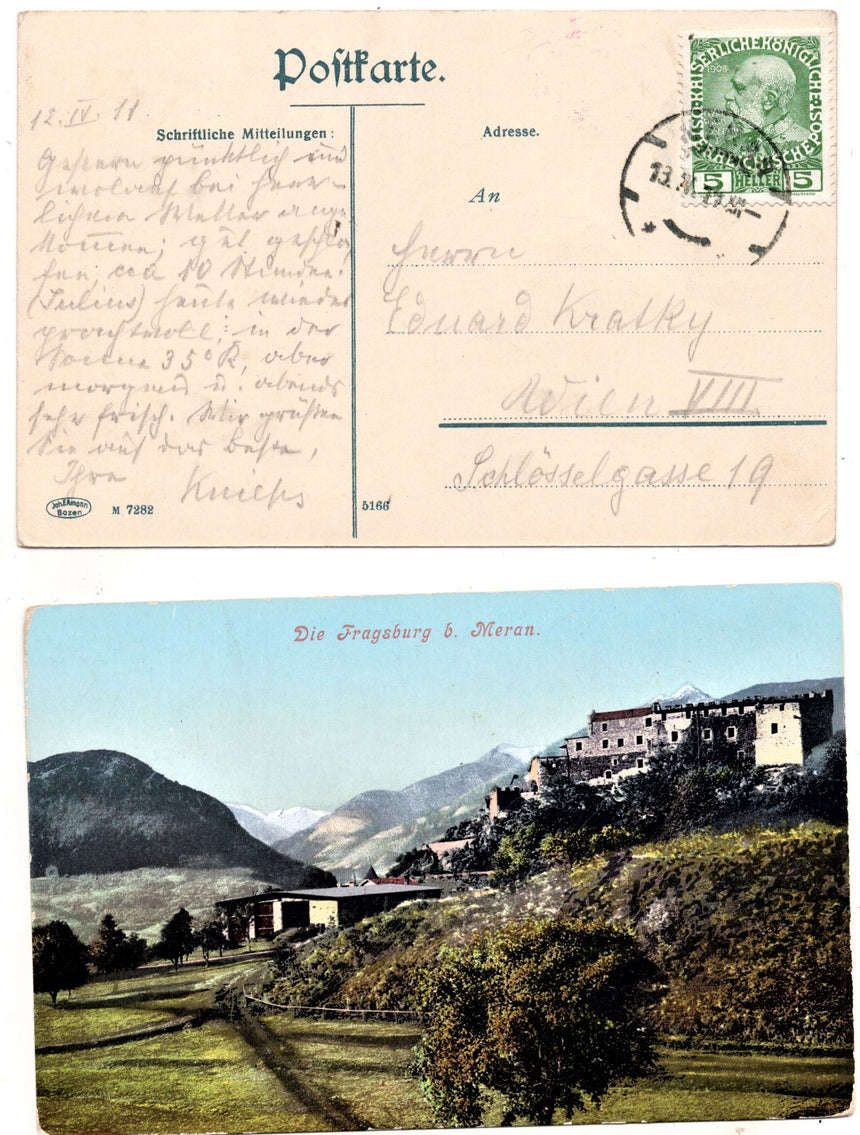 Postkarte.
12. IV. 11
Schriftliche Mitteilungen:
Gestern pünktlich und
wolauf bei herr-
lichem Wetter ange-
kommen; gut geschla-
fen, ca 10 Stunden.
(Julius) heute wieder
prachtvoll; in der
Sonne 35° R, aber
morgens u. abends
sehr frisch. Wir grüßen
Sie auf das beste,
Ihre
Joh. F. Amonn
Bozen
M 7282
5166
Adresse.
An
Herrn
Eduard Kratky
Wien VIII
Schlösselgasse 19
KAISERLICHE KÖNIGLICHE ÖSTERREICHISCHE POST
1908
5 HELLER 5
13. IV. 11
Die Fragsburg b. Meran.